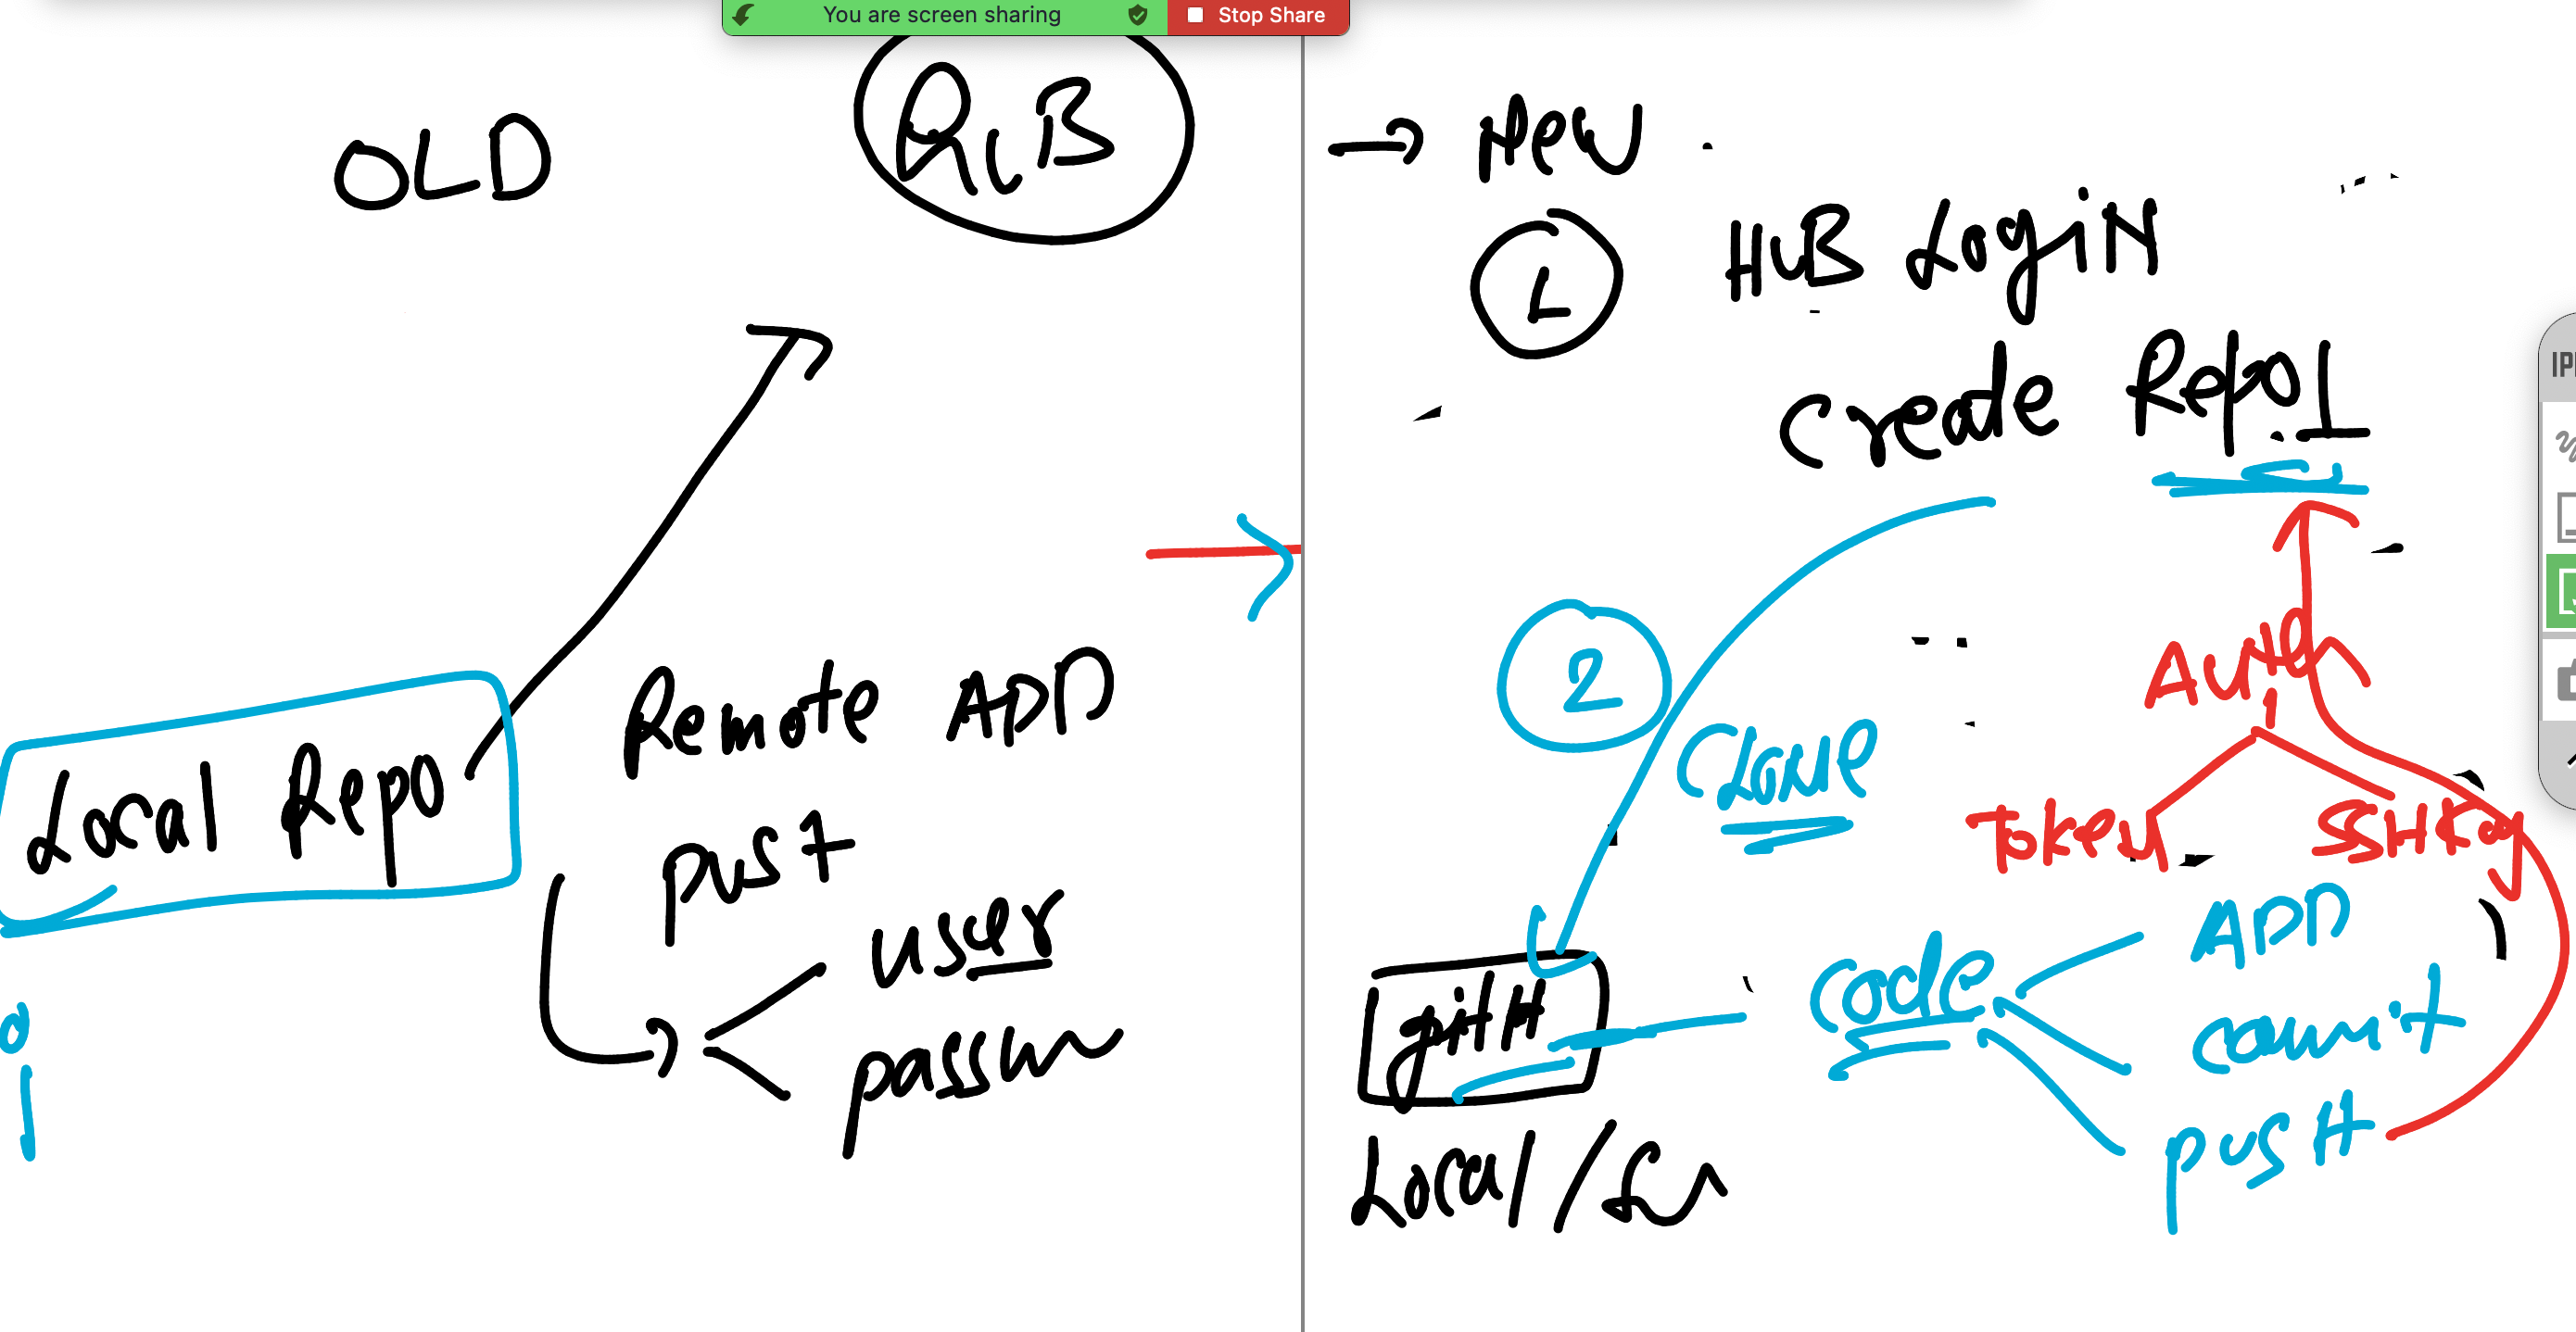 You are screen sharing
Stop Share
OLD
Local Repo
Remote ADD
pust
user
→ New
HUB Login
Create Repo1
2
CLONE
Auth
Token
SSH Key
gitH
code
ADD
commit
pusH
Local/